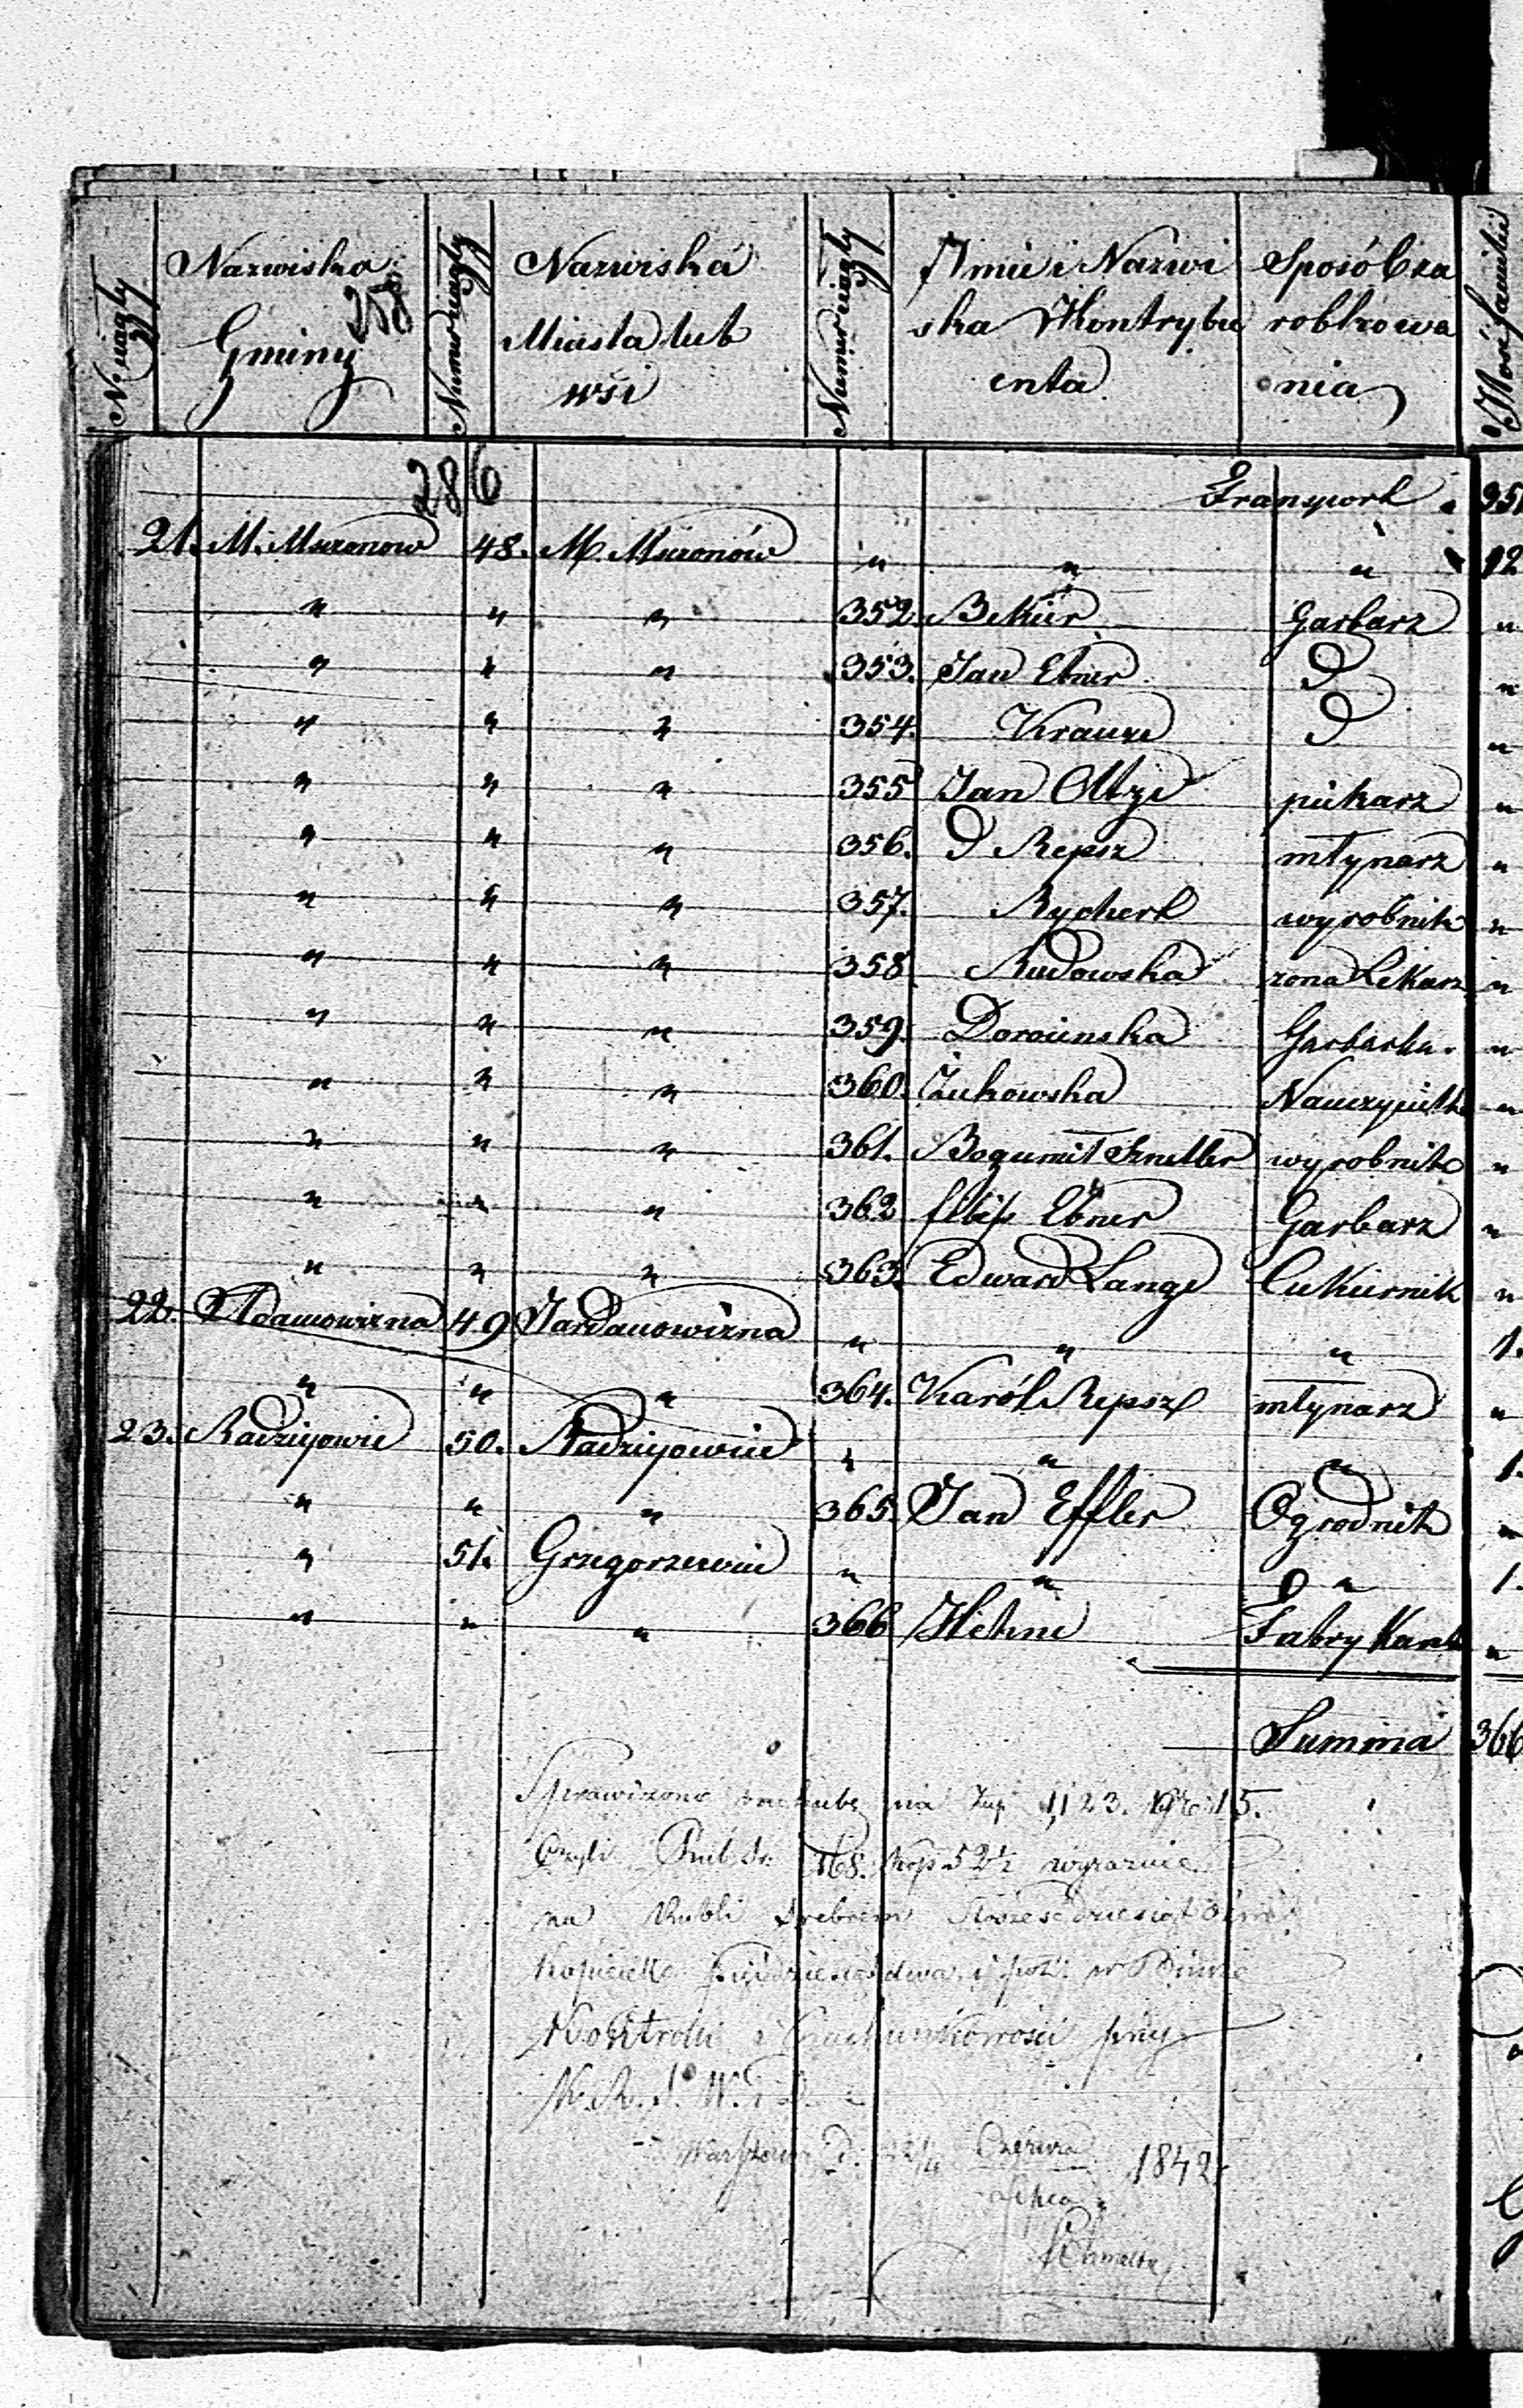 N. ciągły Nazwisko Gminy 258 Numer ciągły Nazwiska Miasta lub wsi Numer ciągły Imie i Nazwiska Kontrybuenta Sposób zarobkowania Ilość familii
286
Transport 351
21. M. Mszonow 48. M. Mszonów " " " 12
" " " 352. Bekier Garbarz "
" " " 353. Jan Ebner D "
" " " 354. Krauze D "
" " " 355 Jan piekarz "
" " " 356. D Repsz młynarz "
" " " 357. Rychert wyrobnik "
" " " 358 Rudowska zona Lekarz "
" " " 359. Garbarka "
" " " 360. Żukowska "
" " " 361. Bogumił Szneller wyrobnik "
" " " 362 filip Ebner Garbarz "
" " " 363. Edward Lange Cukiernik "
22. Adamowizna 49 " " " 1.
" " " 364. Karól Repsz młynarz "
23. Radziejowic 50. Radziejowice " " " 1.
" " " 365. Jan Effler Ogrodnik "
" 51. Grzegorzewice " " " 1.
" " " 366 Fabrykant "
Summa 366
Sprawdzono na Złp 1123. gr 15.
Czyli Rub. sr. 168. kop 52½ wyraznie
na Rubli srebrem Stosześdziesiąt ośm
Kopiejek pięćdziesiąt dwa i poł. w Biurze
Kontroli i Rachunkowości przy
K. R. S. W. i D.
Warszawa d. Czerwca 1842
Lipca